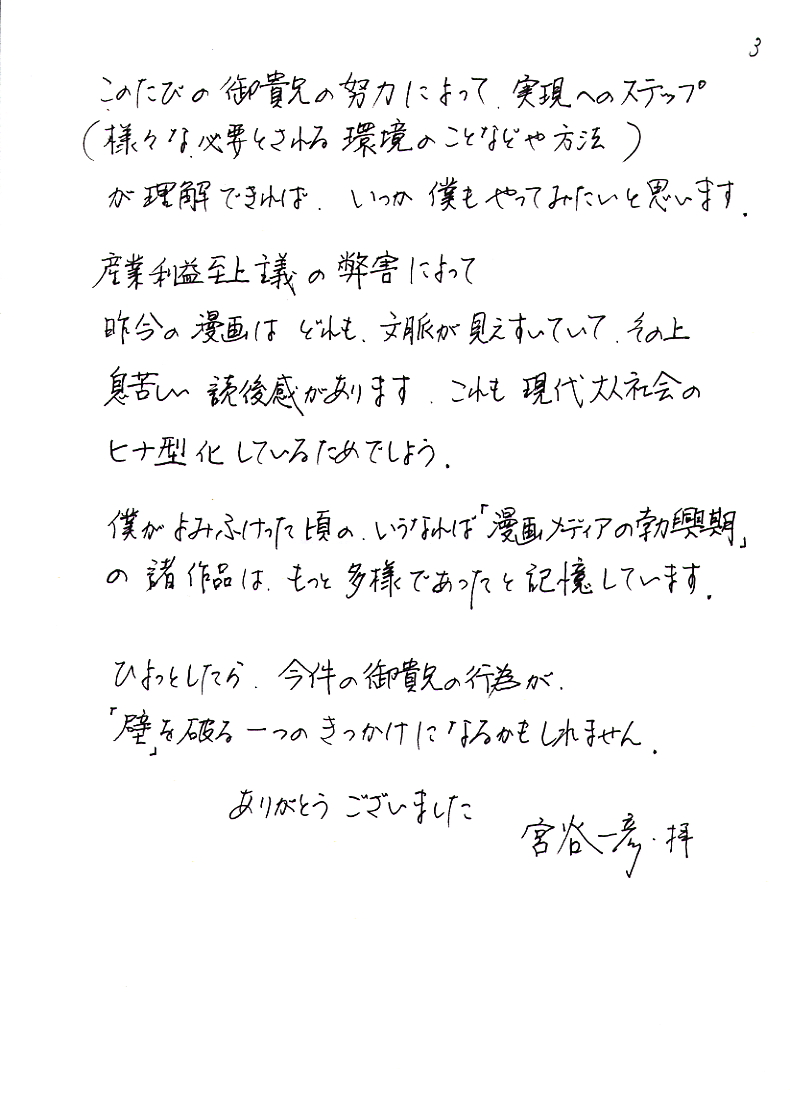 3
このたびの御貴兄の努力によって、実現へのステップ
(様々な、必要とされる環境のことなどや方法)
が理解できれば、いつか僕もやってみたいと思います。
産業利益至上主義の弊害によって
昨今の漫画はどれも、文脈が見えすいていて、その上
息苦しい読後感があります。これも現代大人社会の
ヒナ型化しているためでしょう。
僕がよみふけった頃の、いうなれば「漫画メディアの勃興期」
の諸作品は、もっと多様であったと記憶しています。
ひょっとしたら、今件の御貴兄の行為が、
「壁」を破る一つのきっかけになるかもしれません。
ありがとうございました
宮谷一彦・拝